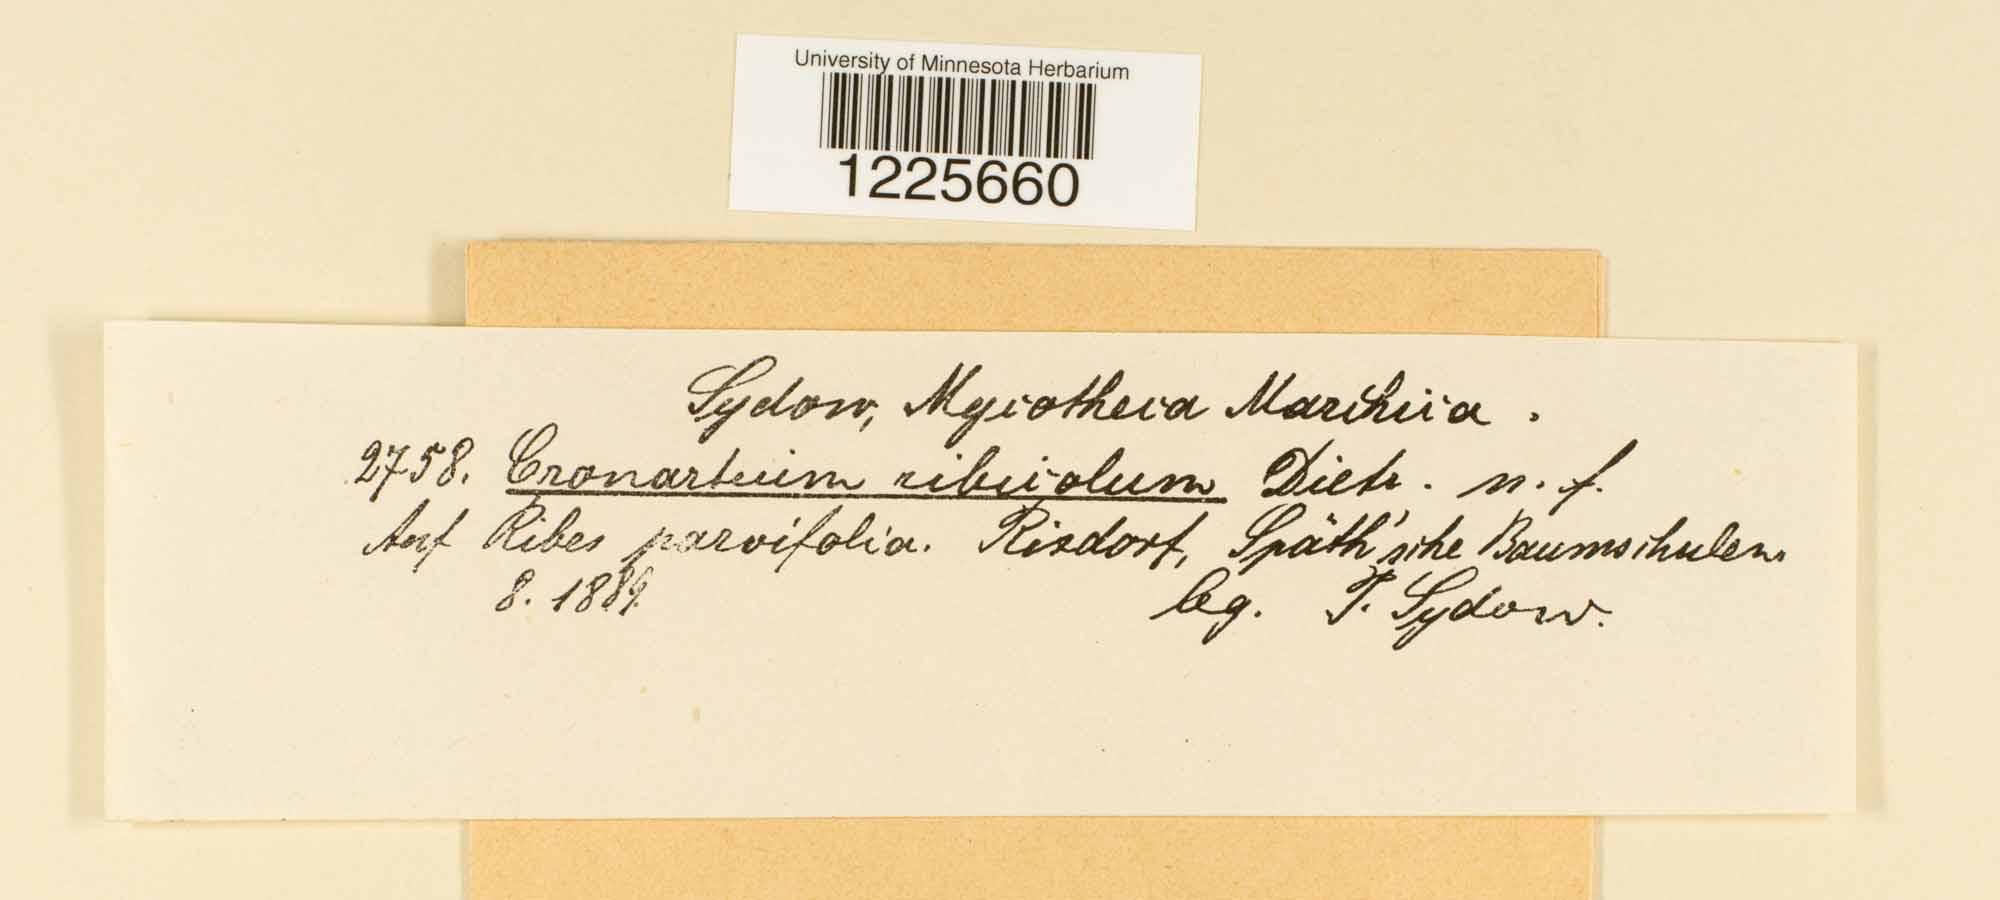 University of Minnesota Herbarium
1225660
Sydow, Mycotheca Marchica.
2758. Cronartium ribicolum Dietr. n. f.
Auf Ribes parvifolia. Rixdorf, Späth'sche Baumschulen
8. 1889. leg. P. Sydow.